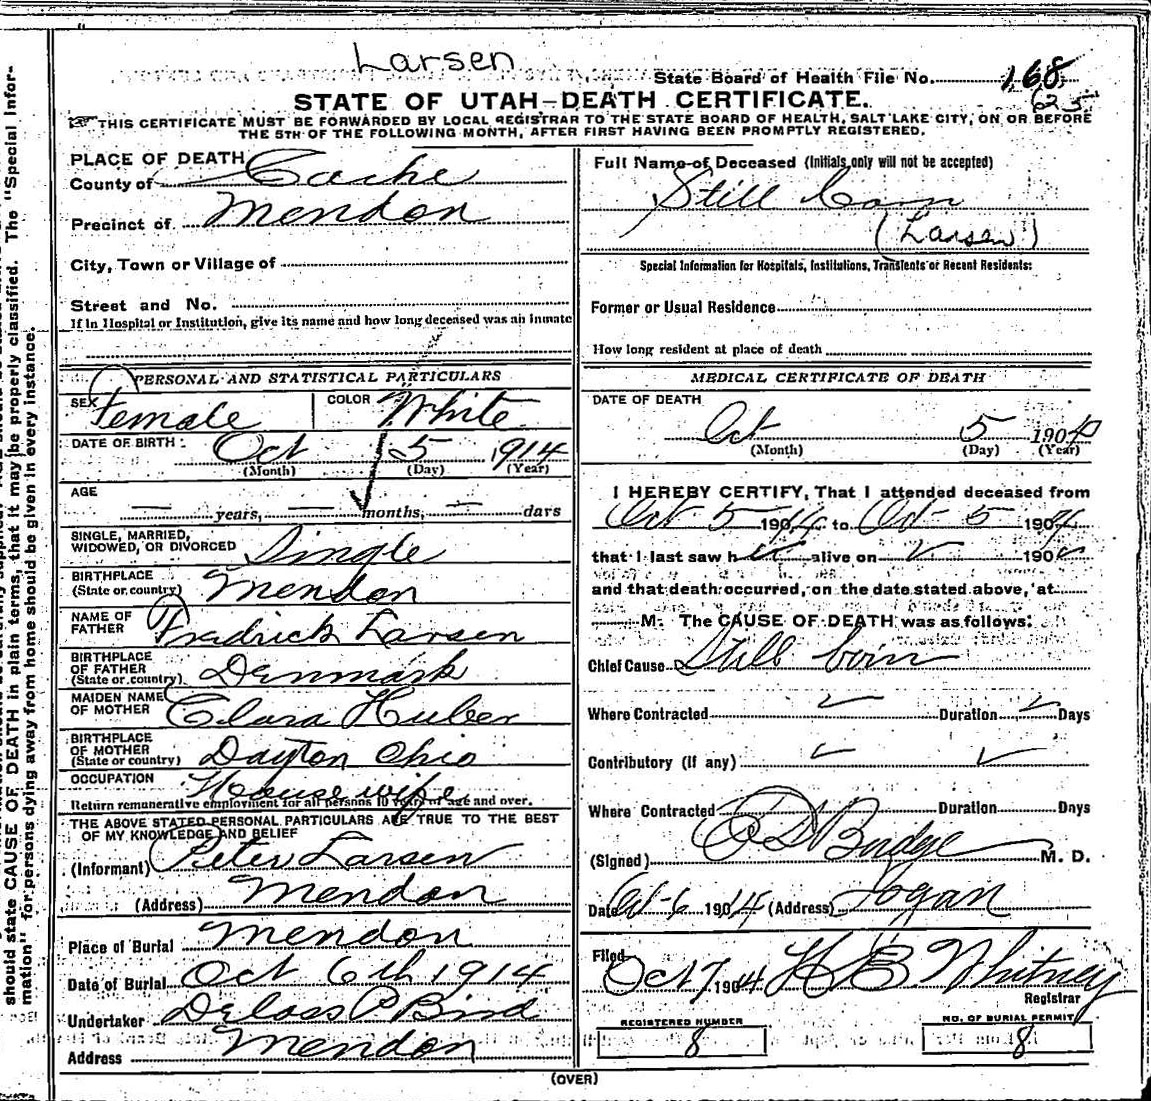 Larsen
State Board of Health File No. 168
625
STATE OF UTAH—DEATH CERTIFICATE.
THIS CERTIFICATE MUST BE FORWARDED BY LOCAL REGISTRAR TO THE STATE BOARD OF HEALTH, SALT LAKE CITY, ON OR BEFORE
THE 5TH OF THE FOLLOWING MONTH, AFTER FIRST HAVING BEEN PROMPTLY REGISTERED.
PLACE OF DEATH
County of Cache
Precinct of Mendon
City, Town or Village of
Street and No.
If in Hospital or Institution, give its name and how long deceased was an inmate
PERSONAL AND STATISTICAL PARTICULARS
SEX Female COLOR White
DATE OF BIRTH: Oct 5 1914
(Month) (Day) (Year)
AGE
— years, — months, — days
SINGLE, MARRIED,
WIDOWED, OR DIVORCED Single
BIRTHPLACE
(State or country) Mendon
NAME OF
FATHER Fredrick Larsen
BIRTHPLACE
OF FATHER
(State or country) Denmark
MAIDEN NAME
OF MOTHER Clara Huber
BIRTHPLACE
OF MOTHER
(State or country) Dayton Ohio
OCCUPATION House wife
Return remunerative employment for all persons 10 years of age and over.
THE ABOVE STATED PERSONAL PARTICULARS ARE TRUE TO THE BEST
OF MY KNOWLEDGE AND BELIEF
(Informant) Peter Larsen
(Address) Mendon
Place of Burial Mendon
Date of Burial Oct 6th 1914
Undertaker Deloss P Bird
Address Mendon
Full Name of Deceased (Initials only will not be accepted)
Still Born
(Larsen)
Special Information for Hospitals, Institutions, Transients or Recent Residents:
Former or Usual Residence
How long resident at place of death
MEDICAL CERTIFICATE OF DEATH
DATE OF DEATH
Oct 5 190
(Month) (Day) (Year)
I HEREBY CERTIFY, That I attended deceased from
Oct 5 1904 to Oct 5 1904
that I last saw h alive on 190
and that death occurred, on the date stated above, at
M. The CAUSE OF DEATH was as follows:
Chief Cause Still born
Where Contracted Duration Days
Contributory (If any)
Where Contracted Duration Days
(Signed) O D Budge M. D.
Date Oct-6 19014 (Address) Logan
Filed Oct 7 1904 H E Whitney
Registrar
REGISTERED NUMBER
8
NO. OF BURIAL PERMIT
8
(OVER)
should state CAUSE OF DEATH in plain terms, that it may be properly classified. The "Special Infor-
mation" for persons dying away from home should be given in every instance.